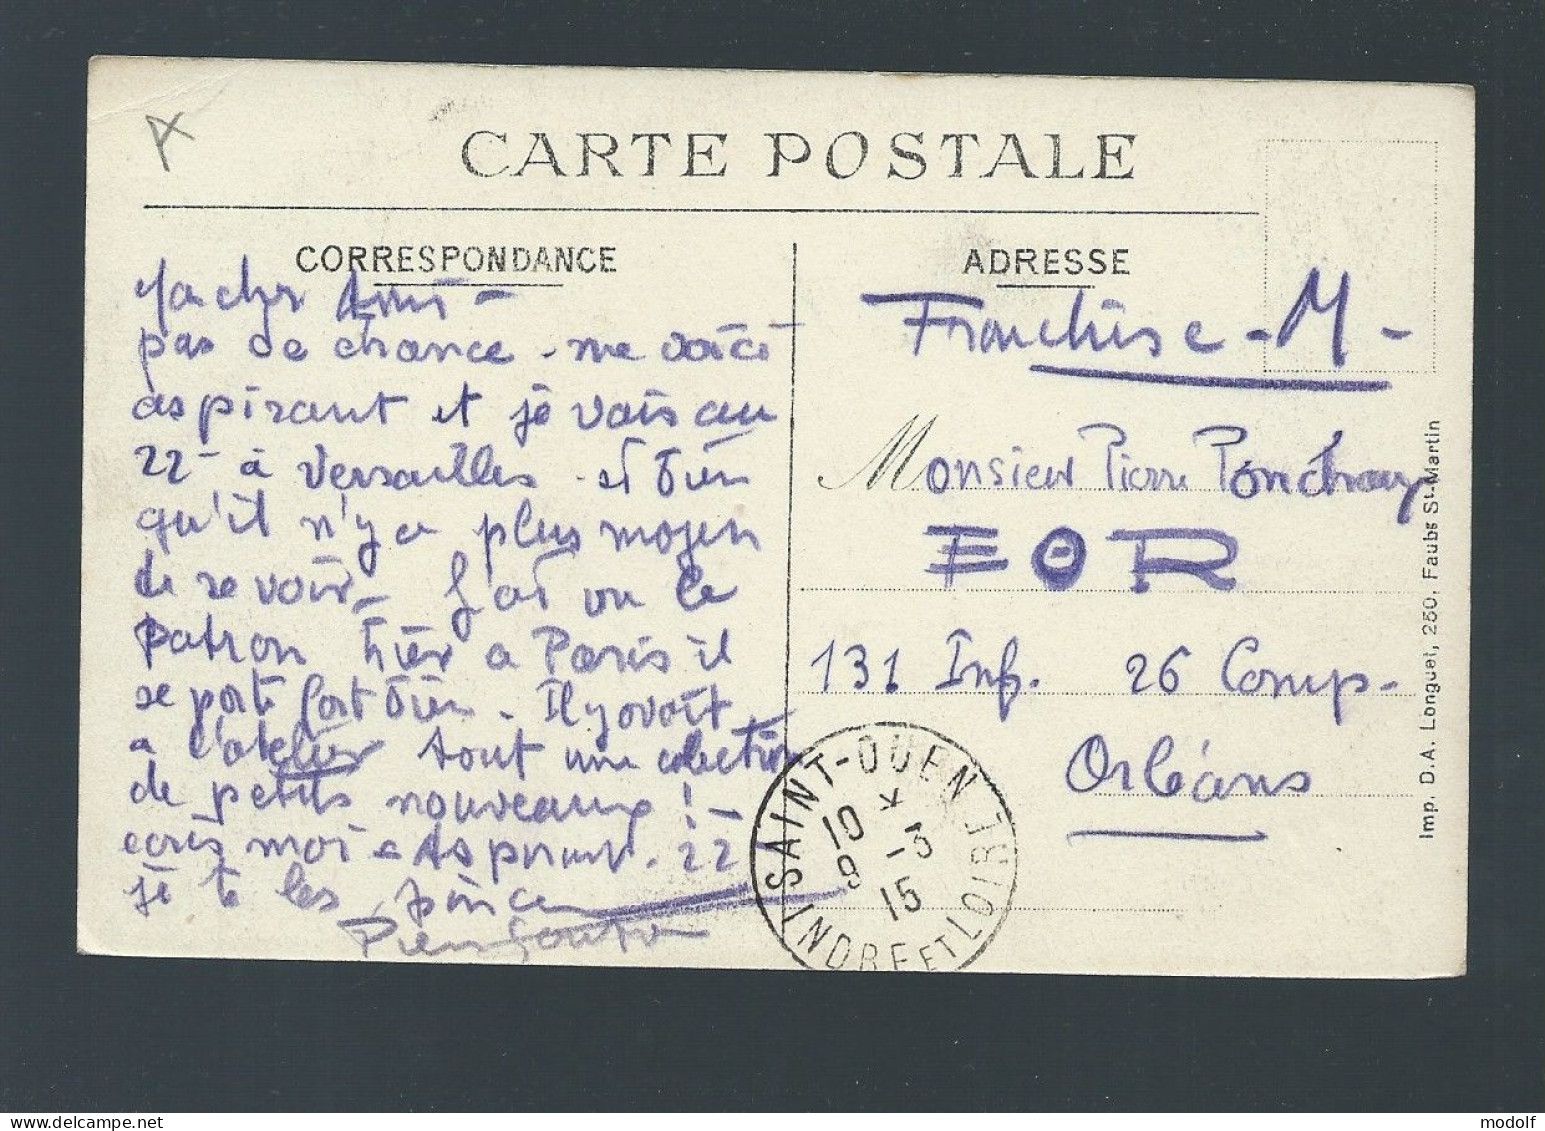 CARTE POSTALE
CORRESPONDANCE
cher Ami -
pas de chance - me voici
aspirant et je vais au
22 - à Versailles - et bien
qu'il n'y a plus moyen
de se voir - J'ai vu le
patron hier a Paris il
se porte fort bien - Il y avait
a l'atelier tout une colection
de petits nouveaux !
ecris moi - Aspirant - 22 -
je te les
ADRESSE
Franchise - M -
Monsieur Pierre
EOR
131 Inf. 26 Comp.
Orléans
SAINT-OUEN
10 *
9 -3
15
INDRE ET LOIRE
Imp. D.A. Longuet, 250, Faubg St-Martin
delcampe.net
modolf